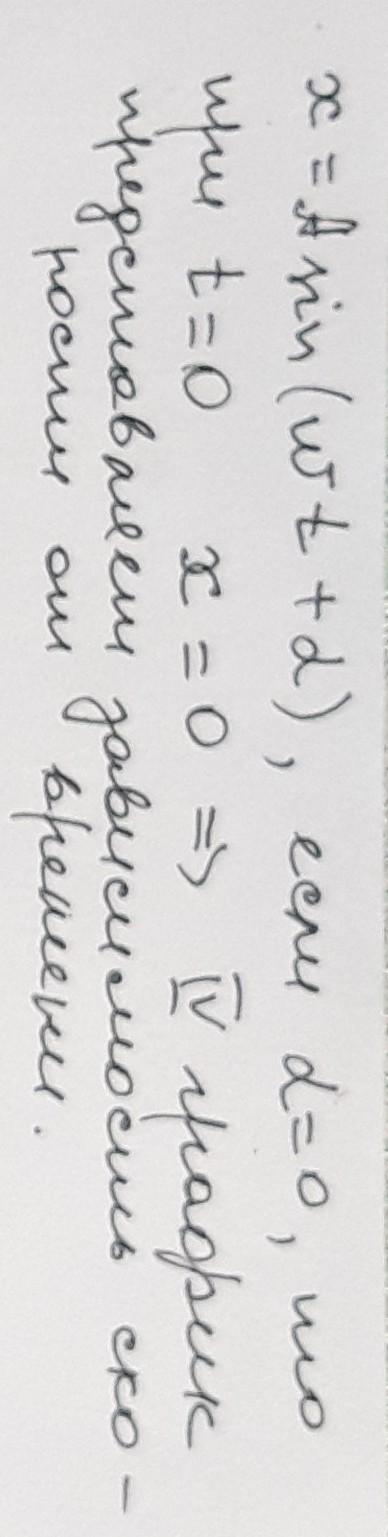 x = A sin(wt + α), если α = 0, то
при t = 0 x = 0 ⇒ IV график
представляет зависимость ско-
рости от времени.